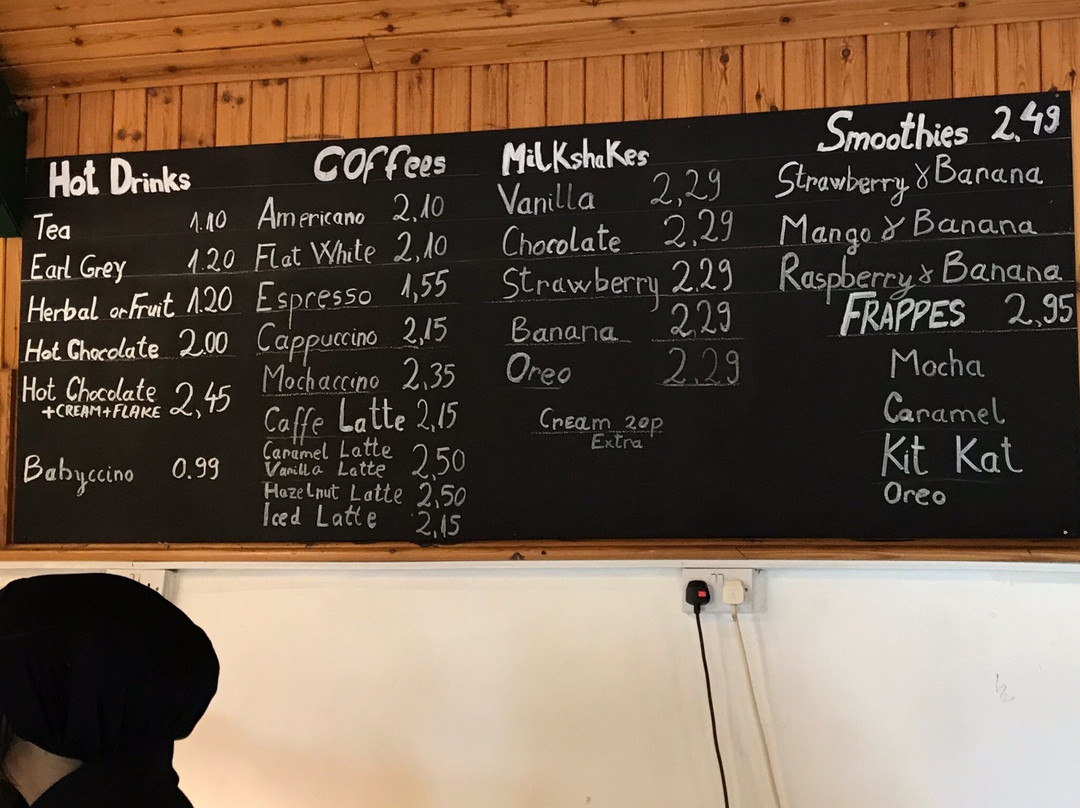 Hot Drinks
Tea 1.10
Earl Grey 1.20
Herbal or Fruit 1.20
Hot Chocolate 2.00
Hot Chocolate
+CREAM+FLAKE 2,45
Babyccino 0.99
COffees
Americano 2,10
Flat White 2,10
Espresso 1,55
Cappuccino 2,15
Mochaccino 2,35
Caffe Latte 2,15
Caramel Latte
Vanilla Latte 2,50
Hazelnut Latte 2,50
Iced Latte 2,15
MilkshaKes
Vanilla 2,29
Chocolate 2,29
Strawberry 2.29
Banana 2.29
Oreo 2.29
Cream 20p
Extra
Smoothies 2.49
Strawberry & Banana
Mango & Banana
Raspberry & Banana
FRAPPES 2,95
Mocha
Caramel
Kit Kat
Oreo